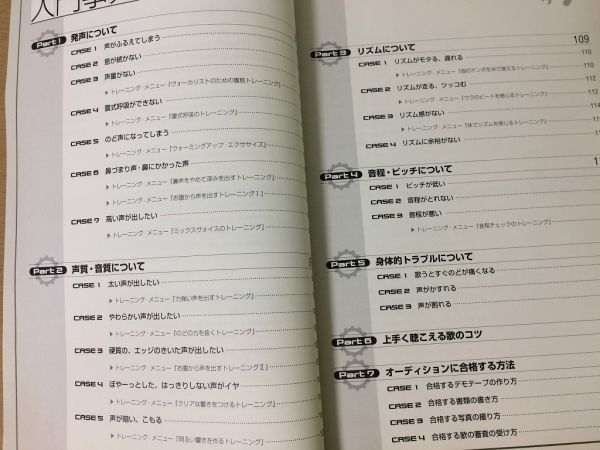 Part 1 発声について
CASE 1 声がふるえてしまう
CASE 2 息が続かない
CASE 3 声量がない
▶トレーニング・メニュー「ヴォーカリストのための腹筋トレーニング」
CASE 4 腹式呼吸ができない
▶トレーニング・メニュー「腹式呼吸のトレーニング」
CASE 5 のど声になってしまう
▶トレーニング・メニュー「ウォーミングアップ・エクササイズ」
CASE 6 鼻づまり声・鼻にかかった声
▶トレーニング・メニュー「鼻声をやめて深みを出すトレーニング」
▶トレーニング・メニュー「お腹から声を出すトレーニングⅠ」
CASE 7 高い声が出したい
▶トレーニング・メニュー「ミックスヴォイスのトレーニング」
Part 2 声質・音質について
CASE 1 太い声が出したい
▶トレーニング・メニュー「力強い声を出すトレーニング」
CASE 2 やわらかい声が出したい
▶トレーニング・メニュー「のどの力を抜くトレーニング」
CASE 3 硬質の、エッジのきいた声が出したい
▶トレーニング・メニュー「お腹から声を出すトレーニングⅡ」
CASE 4 ぼやーっとした、はっきりしない声がイヤ
▶トレーニング・メニュー「クリアな響きをつけるトレーニング」
CASE 5 声が暗い、こもる
▶トレーニング・メニュー「明るい響きを作るトレーニング」
Part 3 リズムについて 109
CASE 1 リズムがモタる、遅れる 110
▶トレーニング・メニュー「曲のテンポを体で覚えるトレーニング」 110
CASE 2 リズムが走る、ツッコむ 112
▶トレーニング・メニュー「ウラのビートを感じるトレーニング」 112
CASE 3 リズム感がない 114
▶トレーニング・メニュー「体でリズムを感じるトレーニング」
CASE 4 リズムに余裕がない
Part 4 音程・ピッチについて
CASE 1 ピッチが低い
CASE 2 音程がとれない
CASE 3 音程が悪い
▶トレーニング・メニュー「音程チェックのトレーニング」
Part 5 身体的トラブルについて
CASE 1 歌うとすぐのどが痛くなる
CASE 2 声がかすれる
CASE 3 声が割れる
Part 6 上手く聴こえる歌のコツ
Part 7 オーディションに合格する方法
CASE 1 合格するデモテープの作り方
CASE 2 合格する書類の書き方
CASE 3 合格する写真の撮り方
CASE 4 合格する歌の審査の受け方